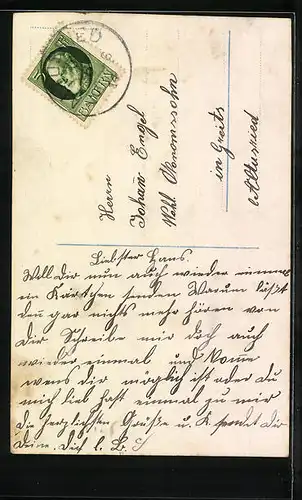 BAYERN
Herrn
Johan Engel
Wohl. Ökonomssohn
in Greits
Altusried
Liebster Hans.
Will Dir nun auch wieder einmal
ein Kärtchen senden Warum läszt
den gar nichts mehr hören von
Dir Schreibe mir doch auch
wieder einmal und kome
wens dir möglich ist oder du
mich lieb hast einmal zu mir
die herzlichsten Grüsse u. K sendet Dir
Deine. Dich l. B.